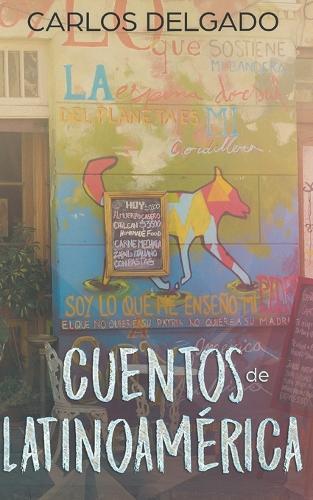 CARLOS DELGADO
LO
que SOSTIENE
MI BANDERA
LA espina dorsal
DEL PLANETA ES MI
Cordillera
HOY
ALMUERZO CASERO
HOMEMADE FOOD
CARNE MECHADA
CON PASTAS
SOY LO QUE ME ENSEÑO MI
EL QUE NO QUIERE A SU PATRIA NO QUIERE A SU MADRE
America
CUENTOS de
LATINOAMÉRICA